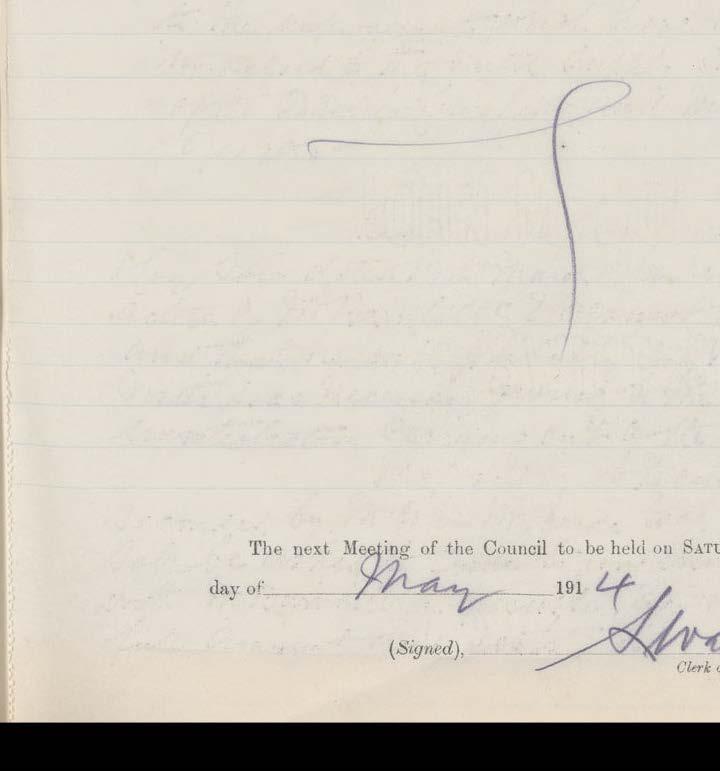 The next Meeting of the Council to be held on SATU
day of May 1914
(Signed),
Clerk